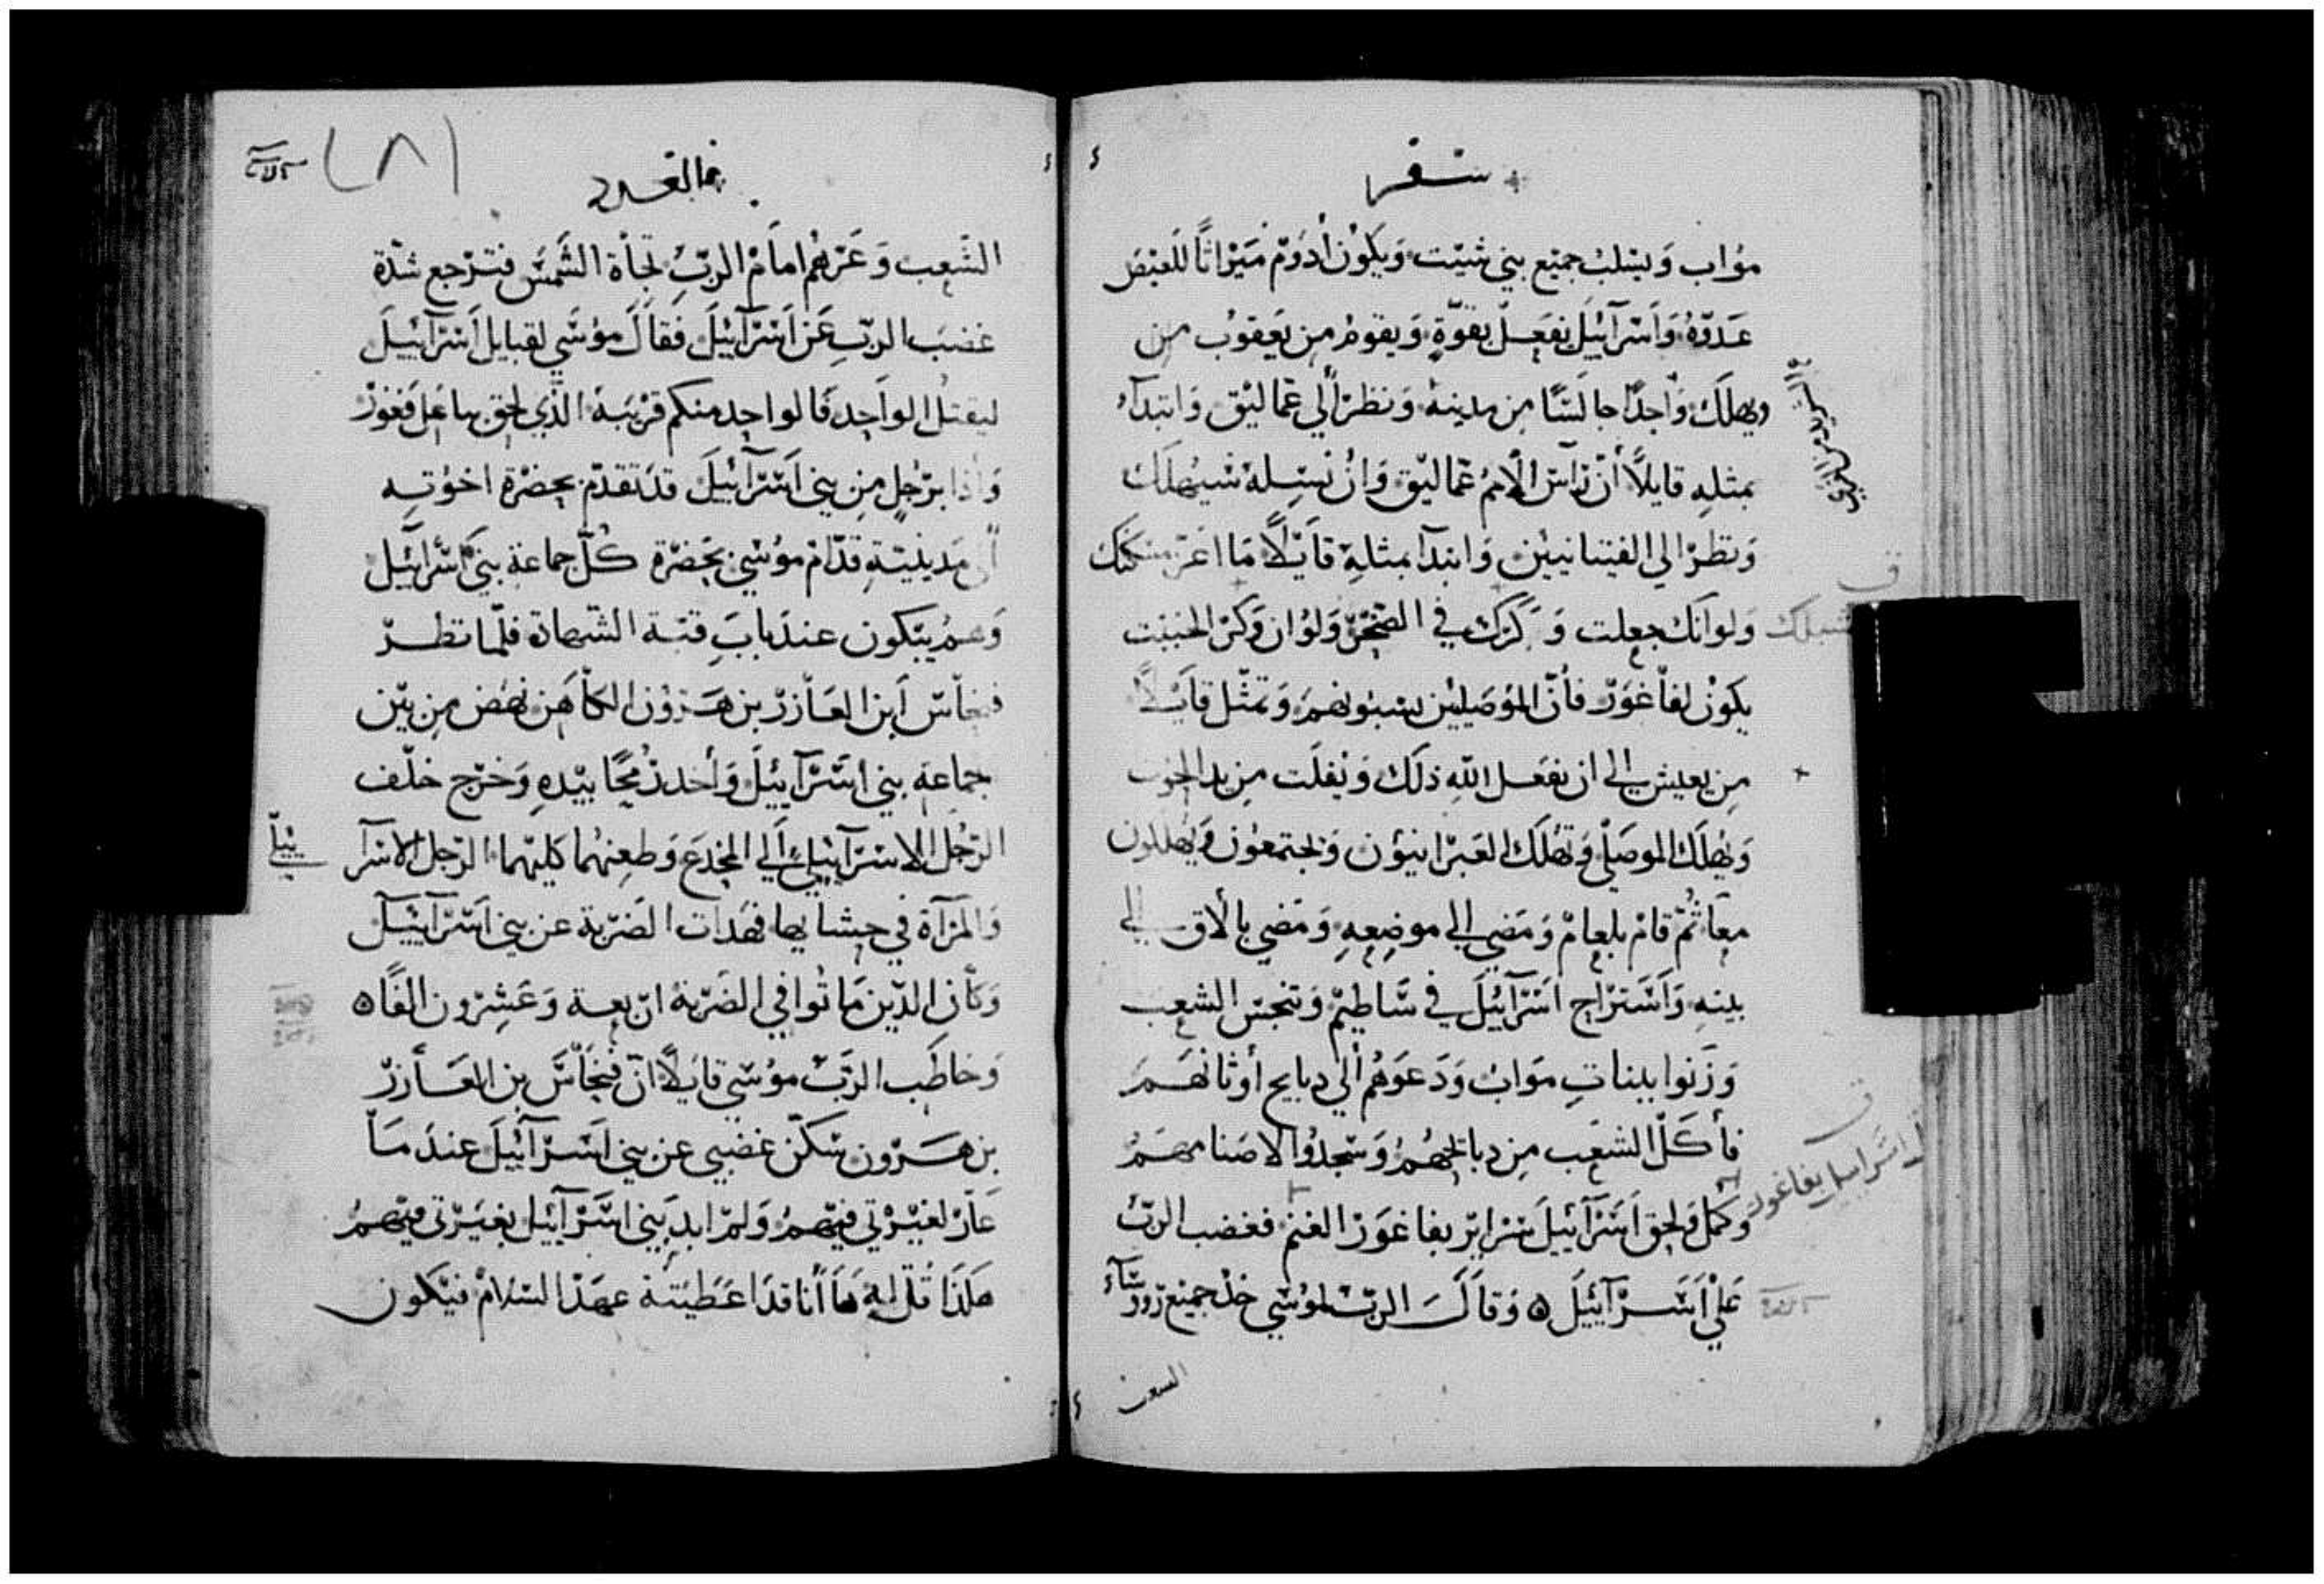 سفر
مؤاب ويسلب جميع بني شيت ويكون أدوم ميراثًا للعيص
عدوّه وأسرآئيل يفعل بقوّة ويقوم من يعقوب من
ويهلك واحدًا جالسًا من مدينة ونظر ألي عماليق وابتدآء
بمثله قايلًا أن رآس الأمم عماليق وان نسله سيهلك
ونظر الي الفينانيين وابتدآ بمثله قايلًا ما اعز مسكنك
ولو انك جعلت وكرك في الصخر ولو ان وكر الخبيث
يكون لفاغور فأن الموصليين يسبونهم وتمثّل قايلًا
من يعيش الي ان يفعل الله ذلك ويفلت من يد
ويهلك الموصلي وتهلك العبرانيون ويجتمعون ويهللون
معا ثمّ قام بلعام ومضي الي موضعه ومضي بالاق الي
بيته واستراح اسرآئيل في ساطيم وتنجس الشعب
وزنوا ببنات مواب ودعوهم ألي دبايح أوثانهم
فأكل الشعب من دبايحهم وسجدوا لاصنامهم
وكمل ولحق اسرآئيل بفاغور الغنم فغضب الربّ
علي أسرآئيل ٥ وقال الربّ لموسي خذ جميع روسآء
الشعب
فالعدد
الشعب وعزهم امام الربّ تجاة الشمس فترجع شدّة
غضب الربّ عن أسرآئيل فقال موسي لقبايل أسرآئيل
ليقتل الواحد فالواحد منكم قريبه الذي لحق بباعل فغور
وأذا برجل من بني أسرآئيل قد تقدّم بحضرة اخوته
ألى مدينيته قدّام موسي بحضرة كلّ جماعة بني أسرآئيل
وهم يبكون عند باب قبّة الشهادة فلمّا نظر
فنحاس أبن العازر بن هرون الكاهن نهض من بين
جماعة بني أسرآئيل وأخد رمحًا بيده وخرج خلف
الرّجل الاسرآئيلي ألي المخدع وطعنهما كليهما الرّجل الاسرآ
ئيلي
والمرآة في حشايها فهدات الضربة عن بني اسرآئيل
وكأن الدّين ماتوا في الضربة اربعة وعشرون الفًا ٥
وخاطب الربّ موسي قايلًا انّ فنحاس بن العازر
بن هرون سكّن غضبي عن بني اسرآئيل عند ما
غار لغيرتي فيهم ولم ابد بني اسرآئيل بغيرتي فيهم
هكذا قل له ها أنا قد اعطيته عهد السلام فيكون